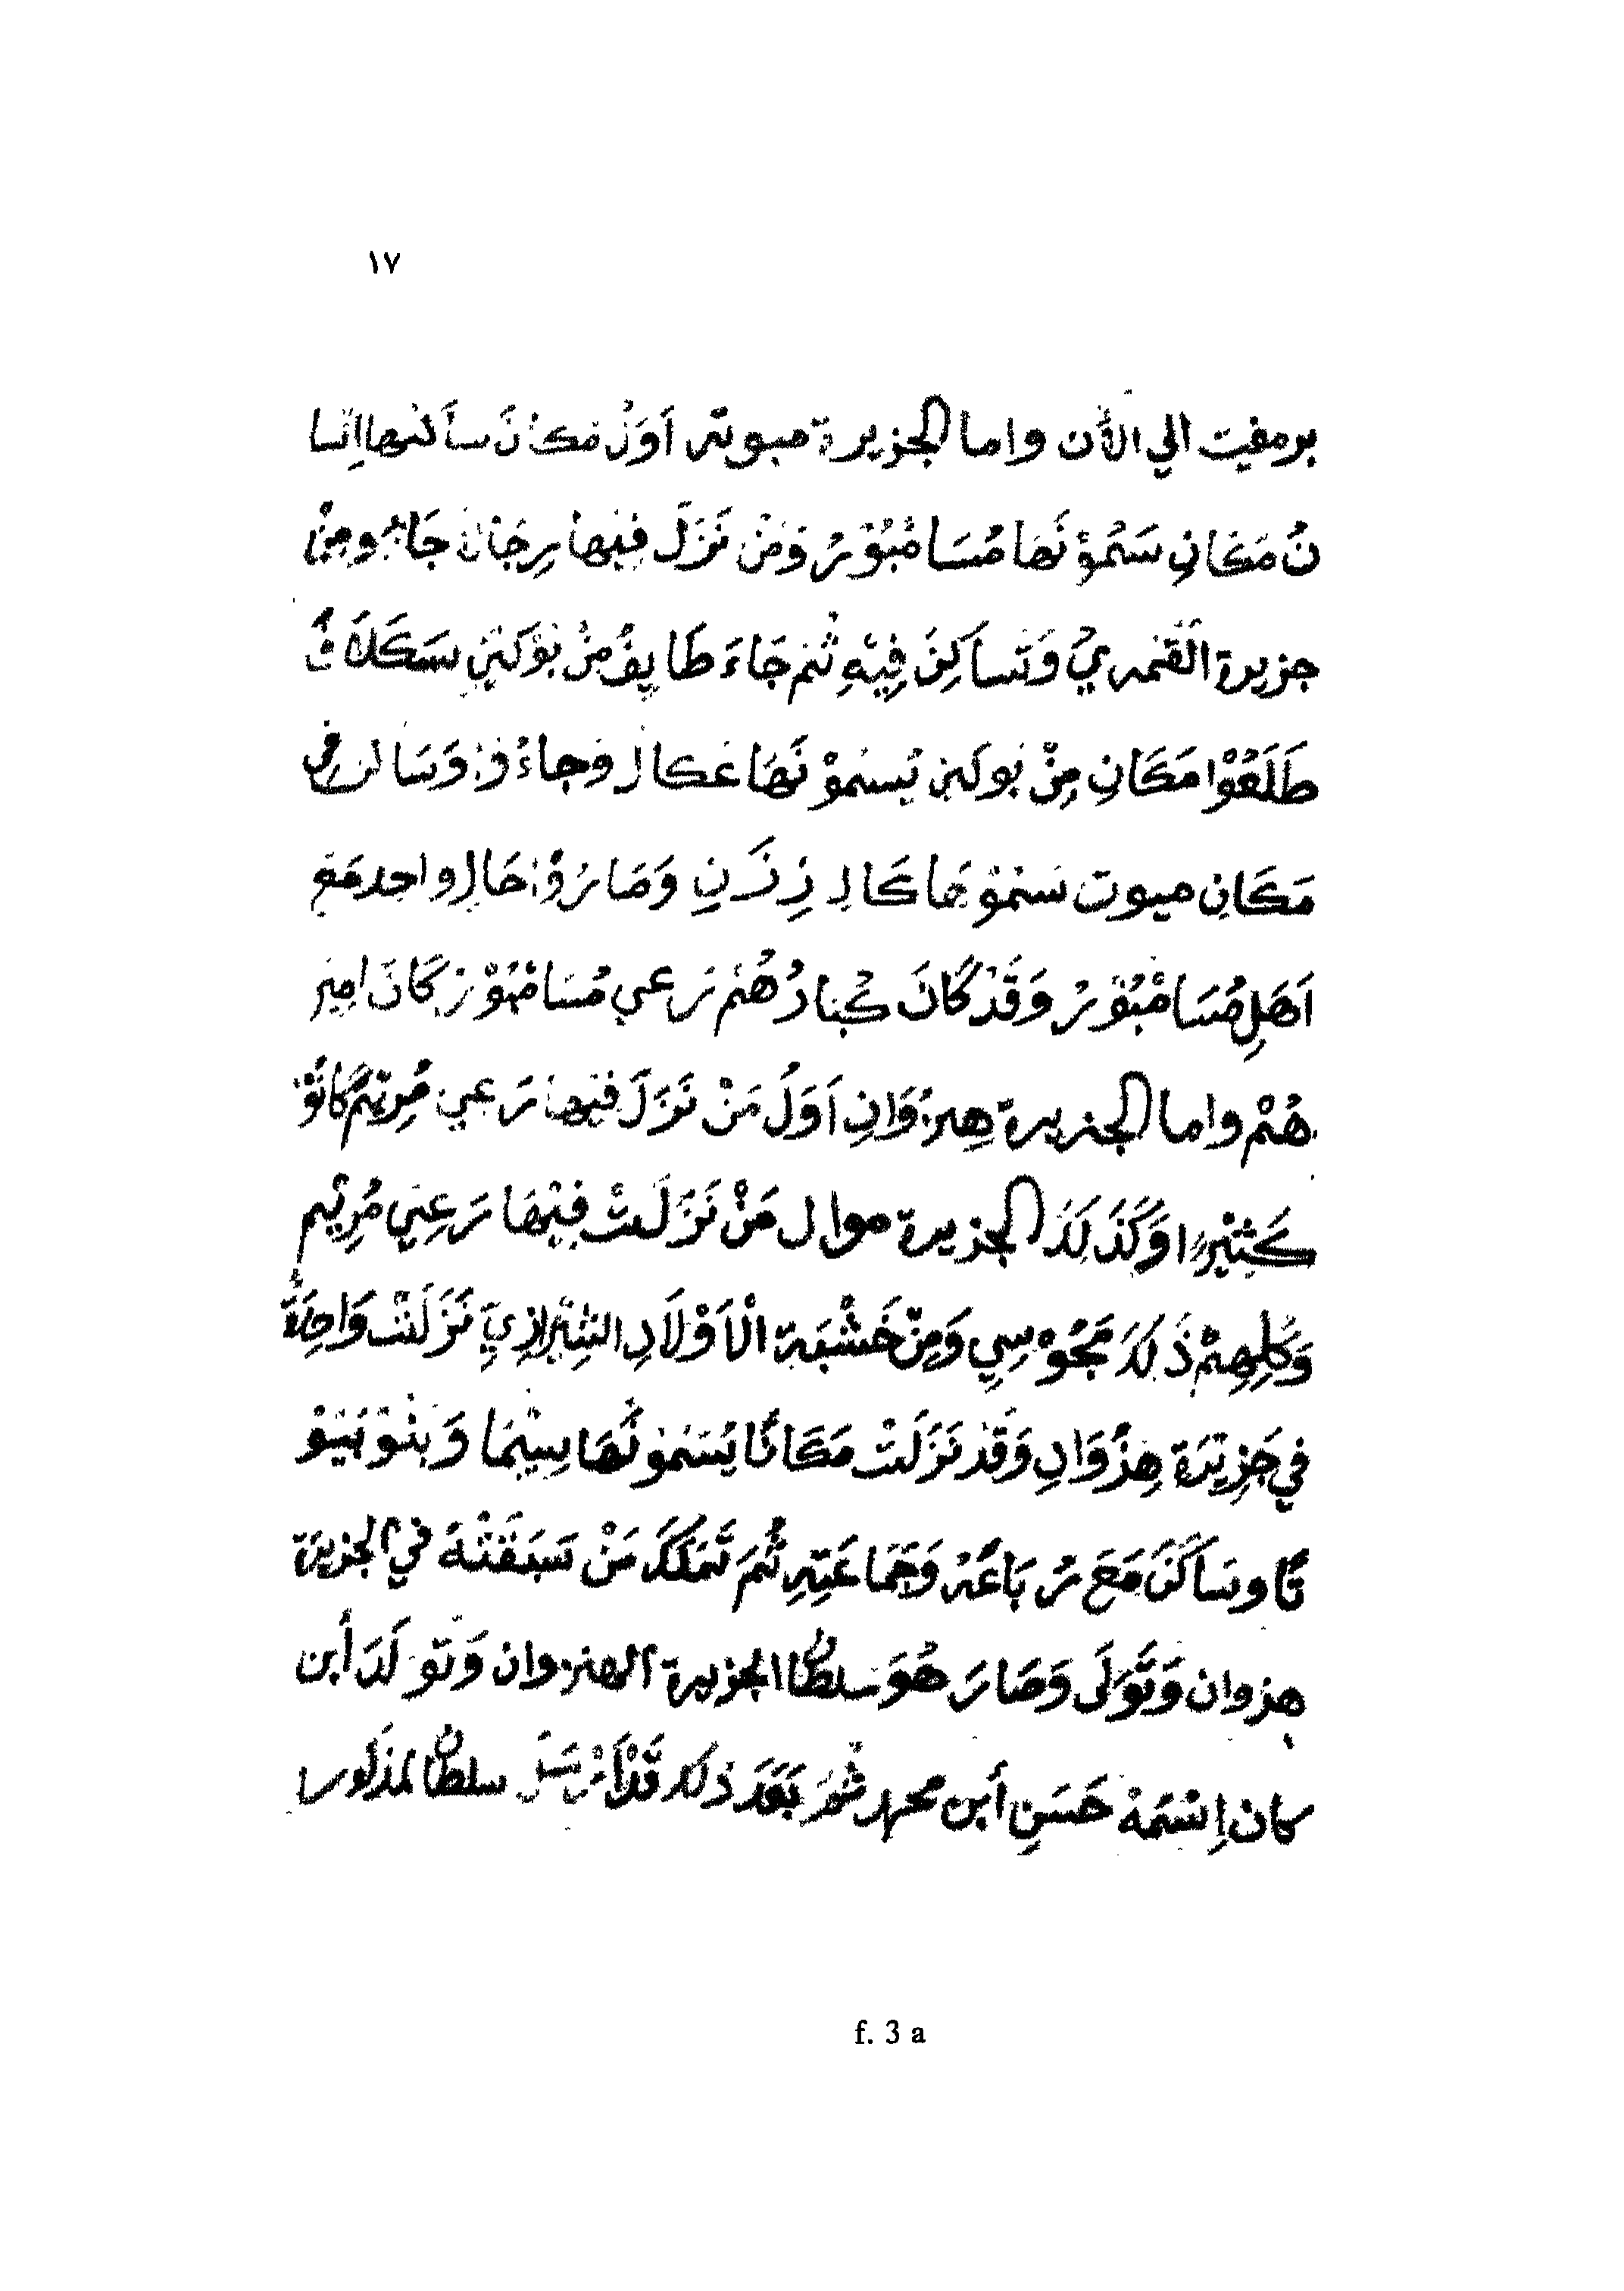 ١٧
برمفيت الي الأن واما الجزيرة ميوته اَوَلُ مَكانَ ساَكنها اِنسا
نُ مَكَانِ سَمُوْنَهَا مُسَامْبُوْرُ وَمَنْ نَزَلَ فِيْهَا رِجَالُ جَاءُو مِنْ
جزيرة القَمَري وَتَساَكِنَ فِيْهِ ثُمَ جَاءَ طَايِفُ مِنْ بُوْكَيْنِ سَكَلاَفُ
طَلَعُوْا مَكَانِ مِنْ بُوكَيْنِ يُسَمُوْنَهَا عَكال وجاءُوْا وَسَاكن في
مَكَانِ ميوت سَمُوْهَا كَالِ وَصَارُوْا حَالِ واحد مَعَ
اَهَلِ مُسَامْبُوْرُ وَقَدْ كَانَ كُبَارُهُمْ رَعي مُسَامْبُوْرْ كَانَ امِير
هُمْ واما الجزيرة هِنزُوَانِ اَوَلُ مَنْ نَزَلَ فِيْهَا رَعِي مُرِيْمُ كَانُوْ
كَثِيْرًا وَكَذَلِكَ الجزيرة موال مَنْ نَزَلَتْ فِيْهَا رَعِيْ مُرِيْمِ
وَكُلِهِمْ ذَلِكَ مَجُوْسِي وَمِنْ خَشَبَة الْاَوْلَادِ الشِيْرَازِيِ نَزَلَتْ وَاحِدَةُ
في جَزِيْرَة هِنزُوَانِ وَقَدْ نَزَلَتْ مَكَانًا يُسَمُوْنُهَا سِيْمَا وَبَنُوْ بَيْتُوْ
تًا وسَاكَنَ مَعَ رُبَاعَهُ وَجَمَاعَتِهِ ثُمَ تَمَلَكَ مَنْ سَبَقَتْهُ في الجزيرة
هنزوان وَتَوَلَى وَصَارَ هُوَ سلطان الجزيرة الهنزوان وَتَوَلَدَ أبن
كان اِسْمُهُ حَسَنِ أبن محمد ثُمَ بَعَدَ ذلك قَدْ سلطان المذكور
f. 3 a